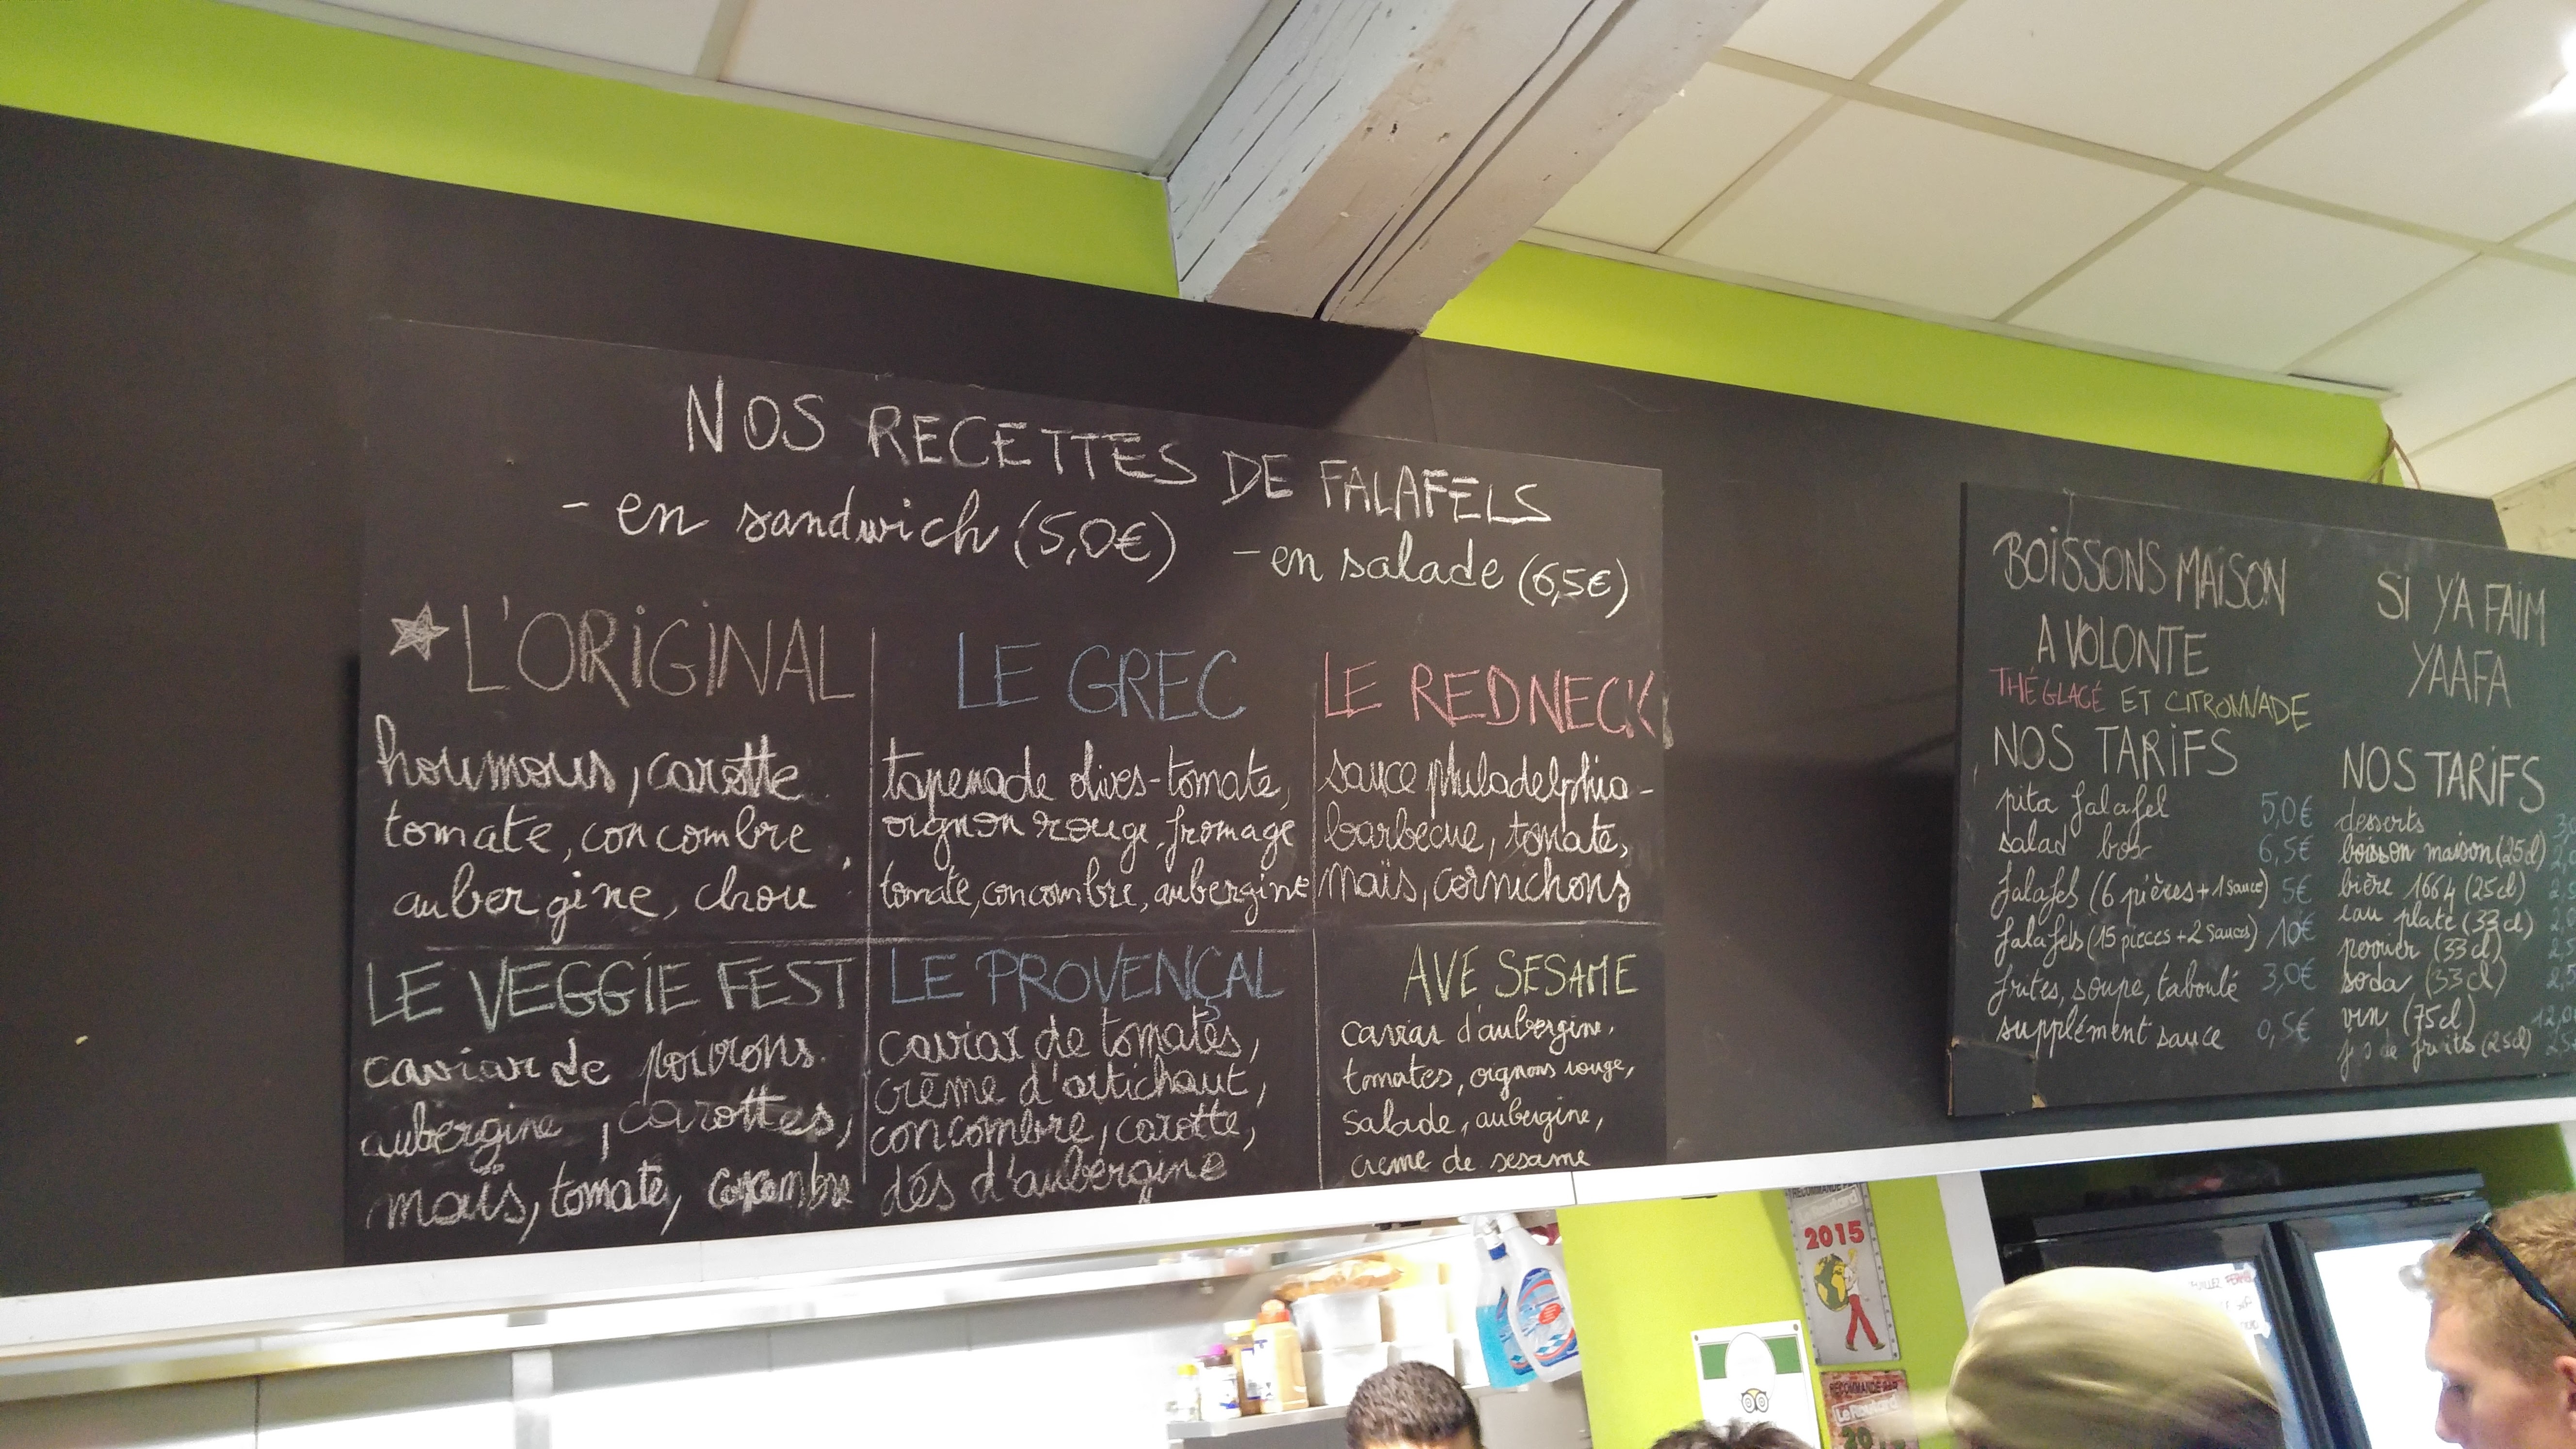 NOS RECETTES DE FALAFELS
- en sandwich (5,0€) - en salade (6,5€)
L'ORIGINAL
houmous, carotte
tomate, concombre
aubergine, chou
LE GREC
tapenade olives-tomate,
oignon rouge, fromage
tomate, concombre, aubergine
LE REDNECK
sauce philadelphia-
barbecue, tomate,
maïs, cornichons
LE VEGGIE FEST
caviar de poivrons
aubergine, carottes,
maïs, tomate, concombre
LE PROVENÇAL
caviar de tomates,
crème d'artichaut,
concombre, carotte,
dés d'aubergine
AVE SESAME
caviar d'aubergine,
tomates, oignons rouge,
salade, aubergine,
creme de sesame
BOISSONS MAISON
A VOLONTE
THÉ GLACÉ ET CITRONNADE
NOS TARIFS
pita falafel 5,0€
salad box 6,5€
falafel (6 pièces + 1 sauce) 5€
falafels (15 pieces + 2 sauces) 10€
frites, soupe, taboulé 3,0€
supplément sauce 0,5€
SI Y'A FAIM
YAAFA
NOS TARIFS
desserts
boisson maison (25cl)
bière 1664 (25cl)
eau plate (33cl)
perrier (33cl)
soda (33cl)
vin (75cl)
jus de fruits (25cl)
RECOMMANDÉ PAR
le Routard
2015
RECOMMANDÉ PAR
Le Routard
20